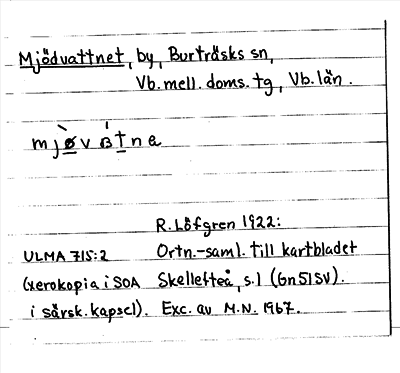 Mjödvattnet, by, Burträsks sn,
Vb. mell. doms. tg, Vb. län.
mjøvätna
R. Löfgren 1922:
ULMA 715:2 Ortn.-saml. till kartbladet
(xerokopia i SOA Skellefteå, s.1 (Gn51SV).
i särsk. kapsel). Exc. av M.N. 1967.